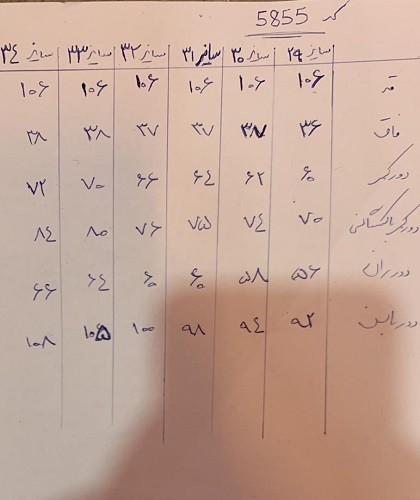 کد 5855
سایز ۲۹ سایز ۳۰ سایز ۳۱ سایز ۳۲ سایز ۳۳ سایز ۳۴
قد ۱۰۶ ۱۰۶ ۱۰۶ ۱۰۶ ۱۰۶ ۱۰۶
فاق ۳۶ ۳۷ ۳۷ ۳۷ ۳۸ ۳۸
دور کمر ۶۰ ۶۲ ۶۴ ۶۶ ۷۰ ۷۲
دور کمر با کشسانی ۷۰ ۷۴ ۷۵ ۷۶ ۸۰ ۸۴
دور ران ۵۶ ۵۸ ۶۰ ۶۰ ۶۴ ۶۶
دور باسن ۹۲ ۹۴ ۹۸ ۱۰۰ ۱۰۵ ۱۰۸